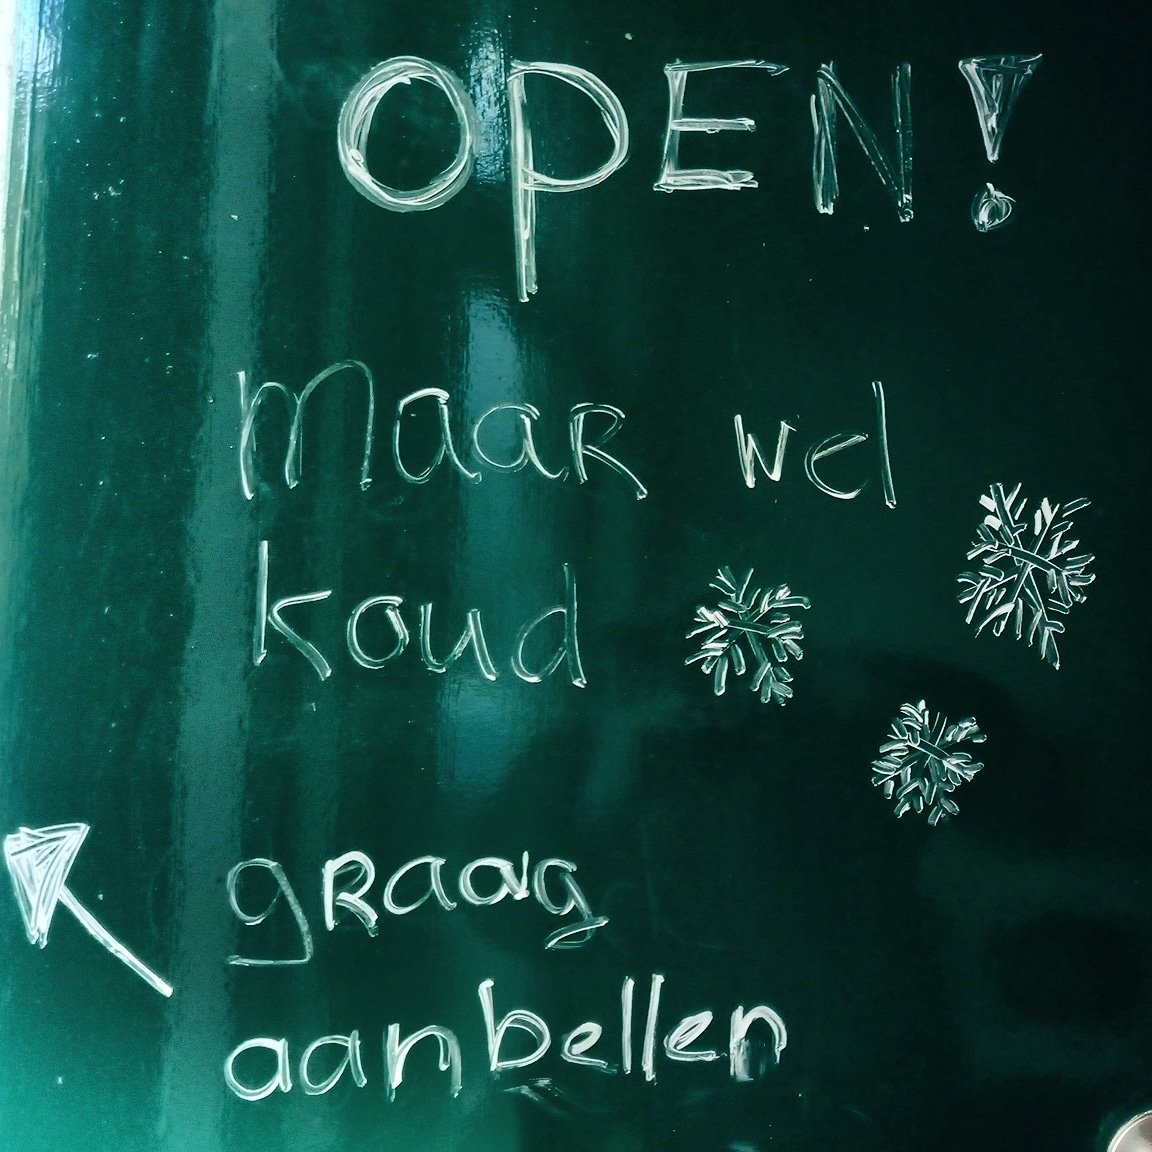 OPEN!
maar wel
koud
graag
aanbellen